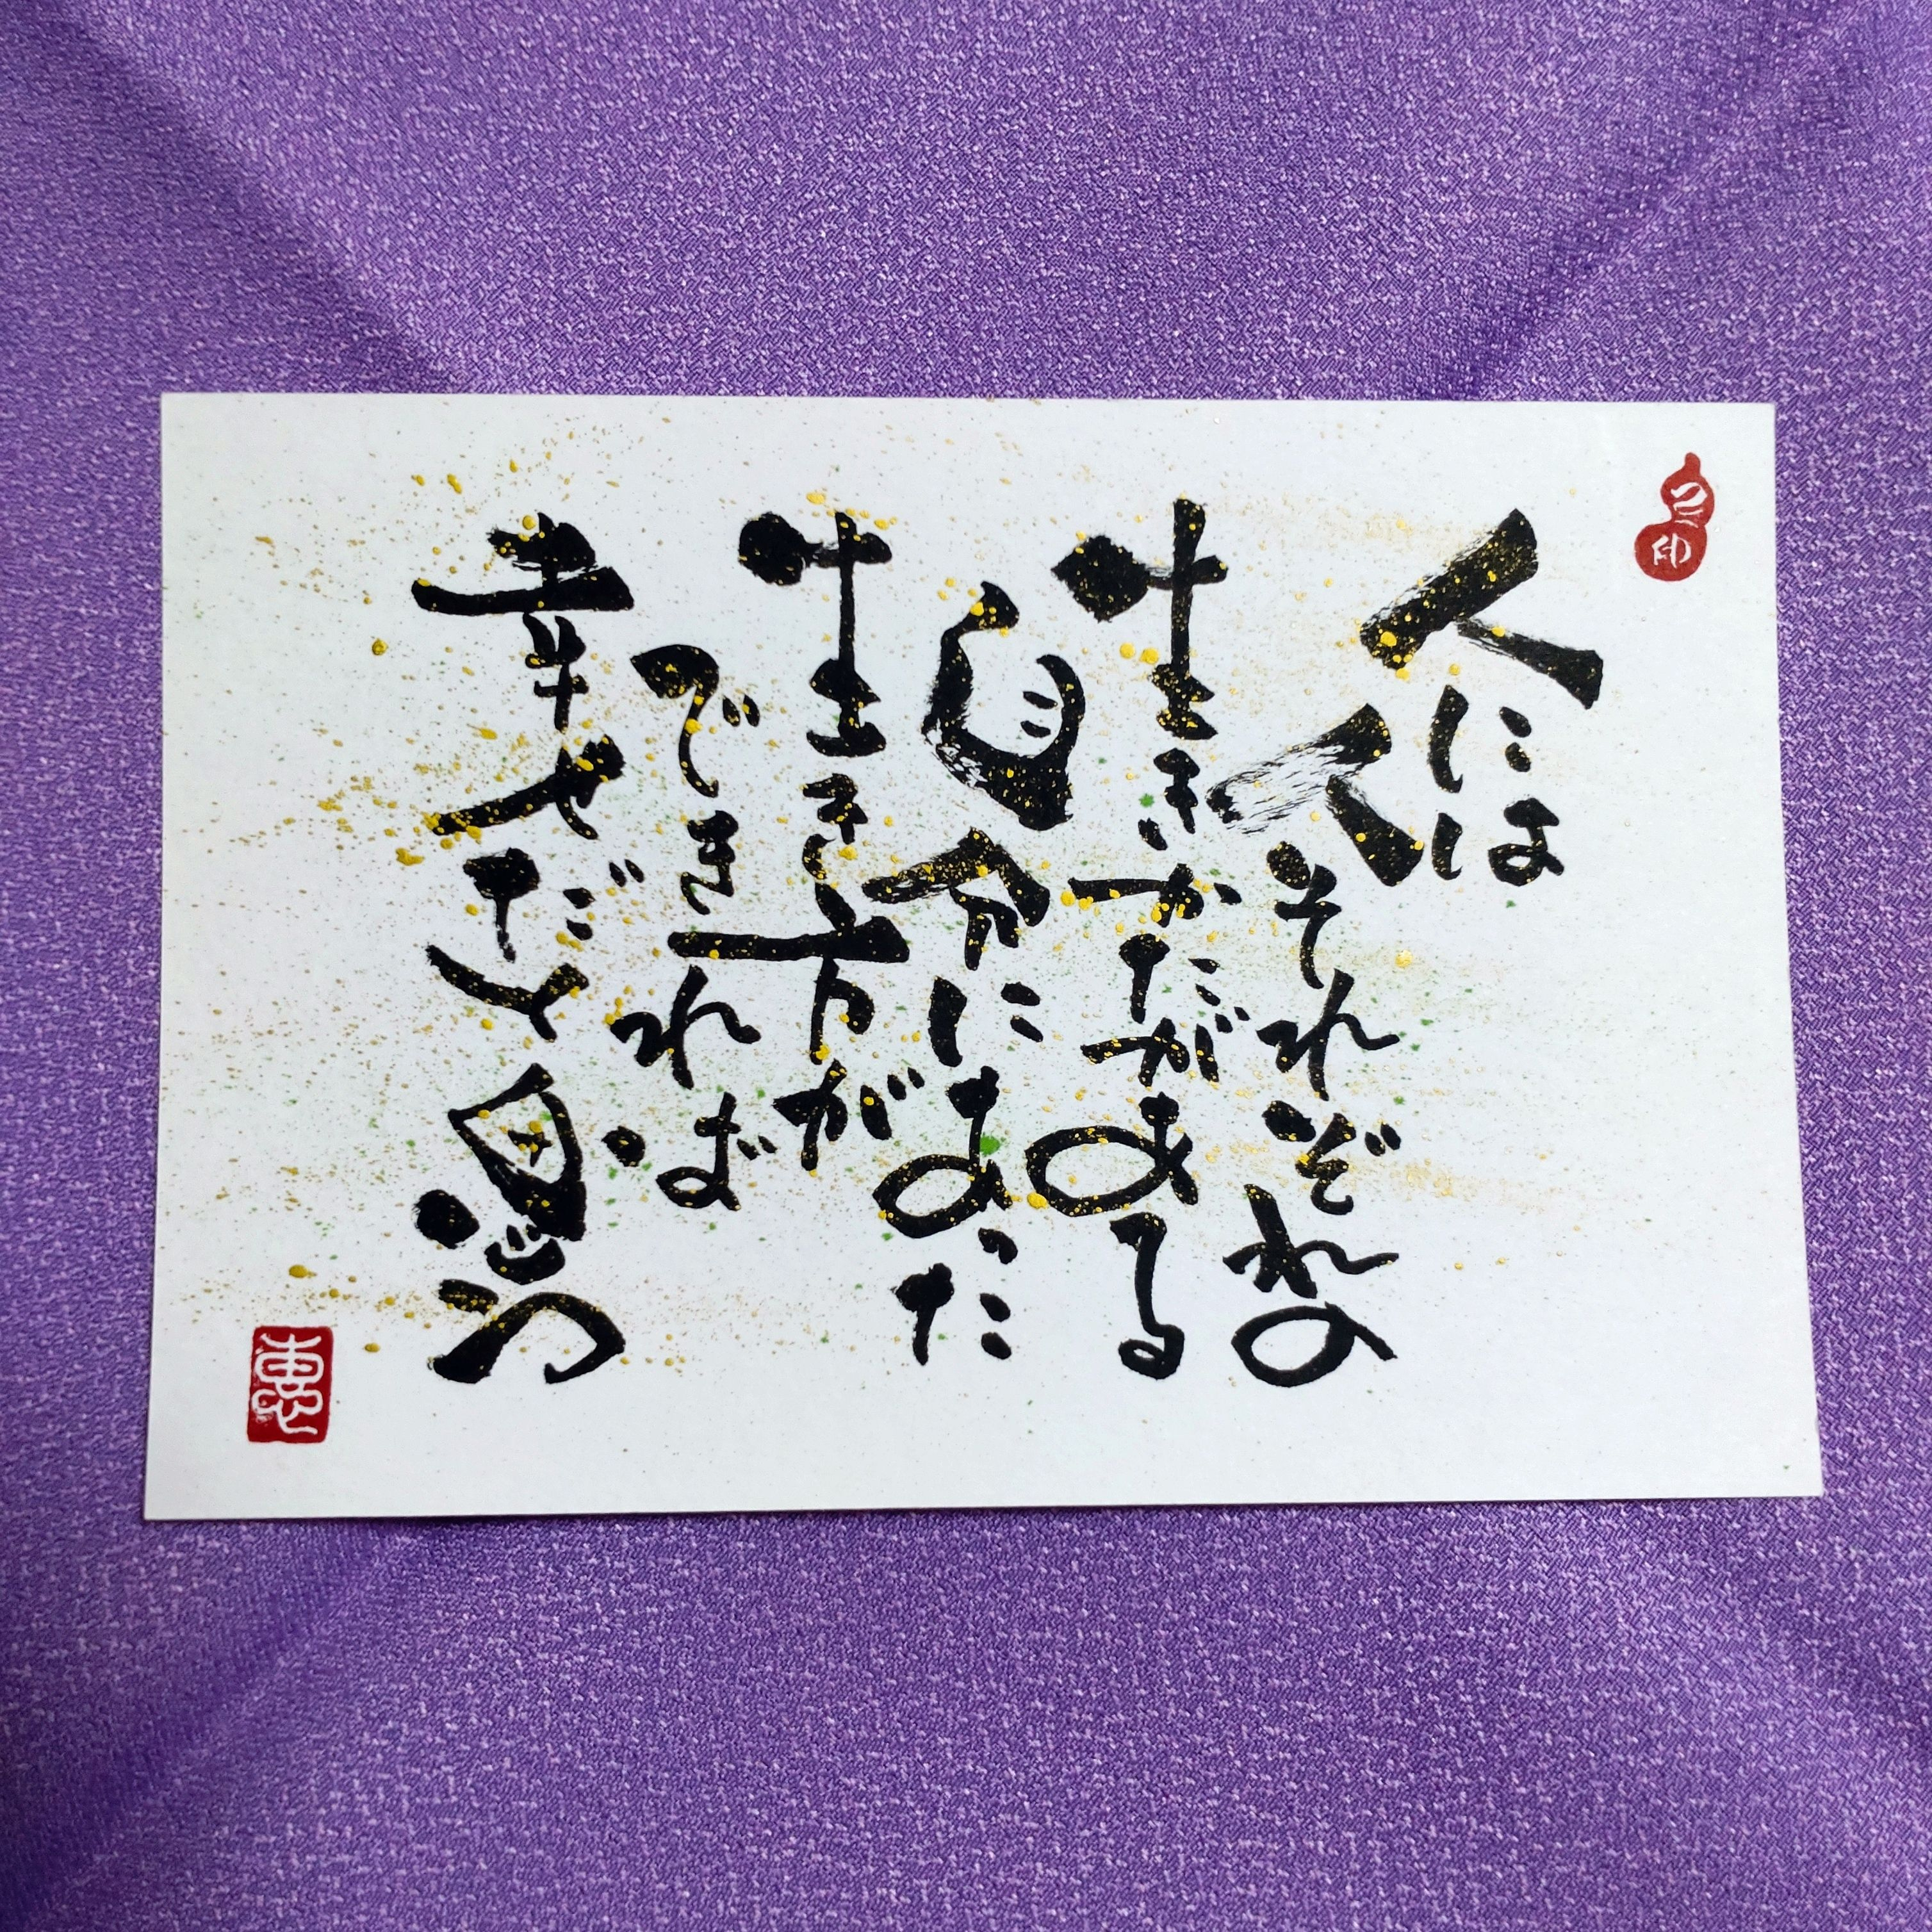 人には
人それぞれの
生きかたがある
自分にあった
生き方が
できれば
幸せだと思う
印
恵